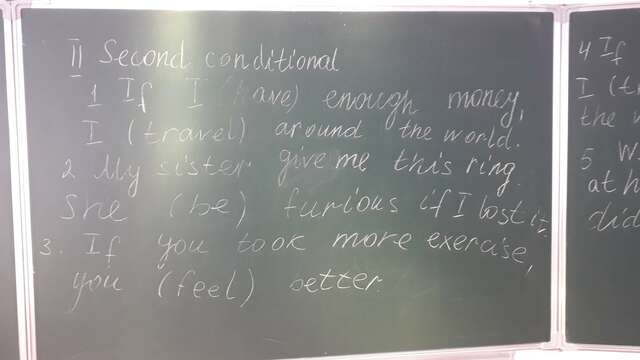 II Second conditional
1 If I (have) enough money,
I (travel) around the world.
2 My sister give me this ring.
She (be) furious if I lost it.
3. If you took more exercise,
you (feel) better.
4 If
I (t
the
5 W
at h
did